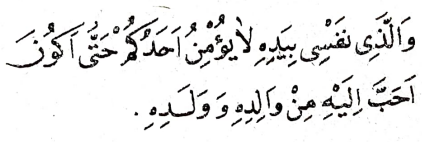 وَالَّذِى نَفْسِى بِيَدِهِ لَا يُؤْمِنُ اَحَدُكُمْ حَتّٰى اَكُوْنَ
اَحَبَّ اِلَيْهِ مِنْ وَالِدِهِ وَ وَلَدِهِ .